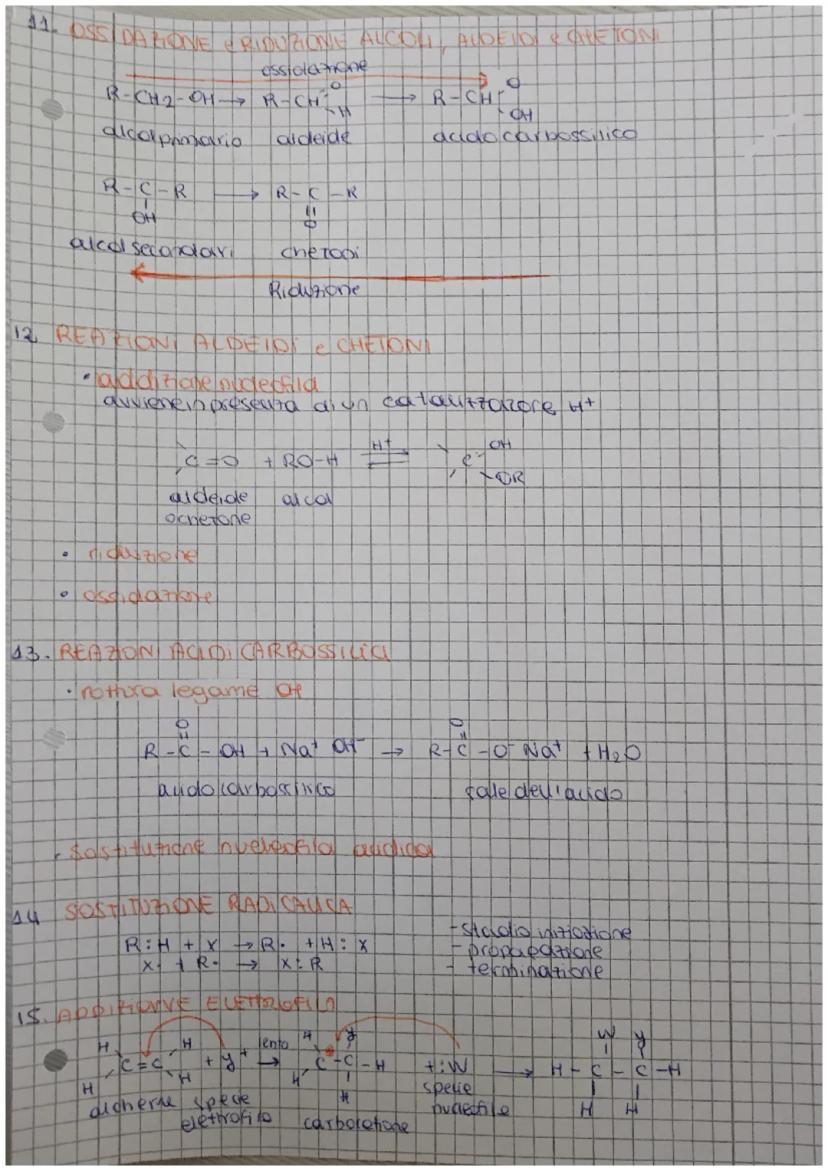 11. OSSIDAZIONE e RIDUZIONE ALCOLI, ALDEIDI e CHETONI
ossidazione
R-CH2-OH → R-CH=O -H → R-CH O OH
alcol primario aldeide acido carbossilico
R-C-R → R-C-R
OH O
alcol secondari chetoni
Riduzione
12 REAZIONI ALDEIDI e CHETONI
• addizione nucleofila
avviene in presenza di un catalizzatore H+
C=O + RO-H H+ ⇌ C OH OR
aldeide alcol
o chetone
• riduzione
• ossidazione
13. REAZIONI ACIDI CARBOSSILICI
• rottura legame OH
O O
R-C-OH + Na+ OH- → R-C-O- Na+ + H2O
acido carbossilico sale dell'acido
• sostituzione nucleofila acilica
14 SOSTITUZIONE RADICALICA
R:H + X → R• + H:X
X• + R• → X:R
- stadio iniziazione
- propagazione
- terminazione
15. ADDIZIONE ELETTROFILA
H H H y W y
C=C + y+ lento → C-C-H + :W → H-C-C-H
H H H H H H
alchene specie elettrofilo carbocatione specie nucleofile